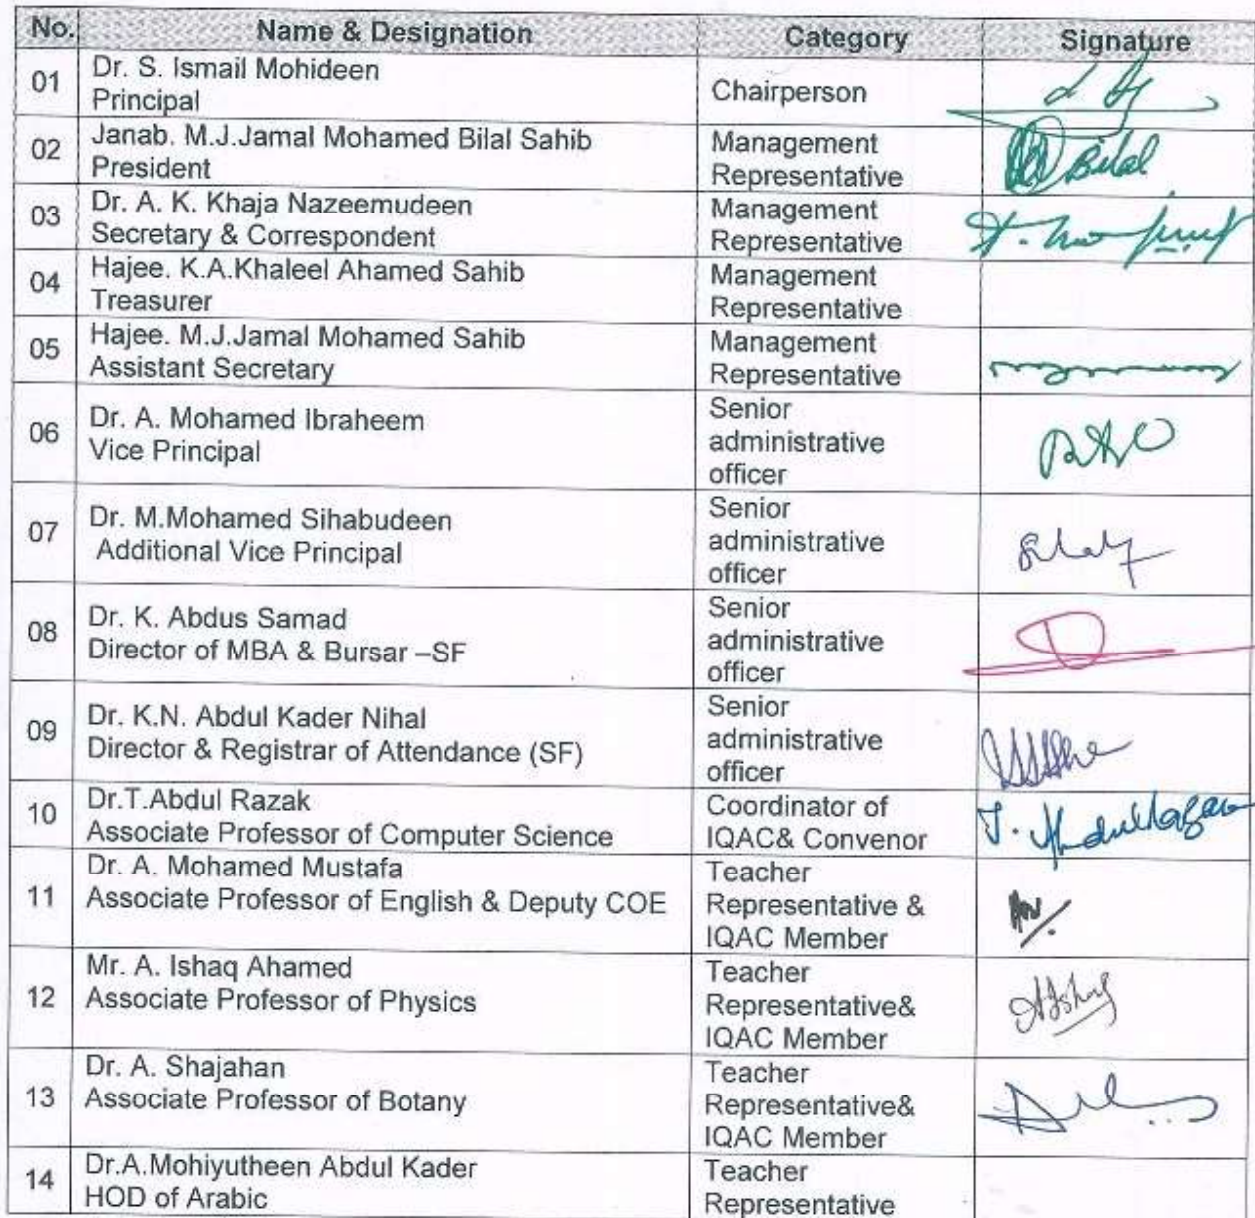 No. Name & Designation Category Signature
01 Dr. S. Ismail Mohideen
Principal
Chairperson
02 Janab. M.J.Jamal Mohamed Bilal Sahib
President
Management
Representative
Bilal
03 Dr. A. K. Khaja Nazeemudeen
Secretary & Correspondent
Management
Representative
04 Hajee. K.A.Khaleel Ahamed Sahib
Treasurer
Management
Representative
05 Hajee. M.J.Jamal Mohamed Sahib
Assistant Secretary
Management
Representative
06 Dr. A. Mohamed Ibraheem
Vice Principal
Senior
administrative
officer
07 Dr. M.Mohamed Sihabudeen
Additional Vice Principal
Senior
administrative
officer
08 Dr. K. Abdus Samad
Director of MBA & Bursar –SF
Senior
administrative
officer
09 Dr. K.N. Abdul Kader Nihal
Director & Registrar of Attendance (SF)
Senior
administrative
officer
10 Dr.T.Abdul Razak
Associate Professor of Computer Science
Coordinator of
IQAC& Convenor
11 Dr. A. Mohamed Mustafa
Associate Professor of English & Deputy COE
Teacher
Representative &
IQAC Member
12 Mr. A. Ishaq Ahamed
Associate Professor of Physics
Teacher
Representative&
IQAC Member
13 Dr. A. Shajahan
Associate Professor of Botany
Teacher
Representative&
IQAC Member
14 Dr.A.Mohiyutheen Abdul Kader
HOD of Arabic
Teacher
Representative